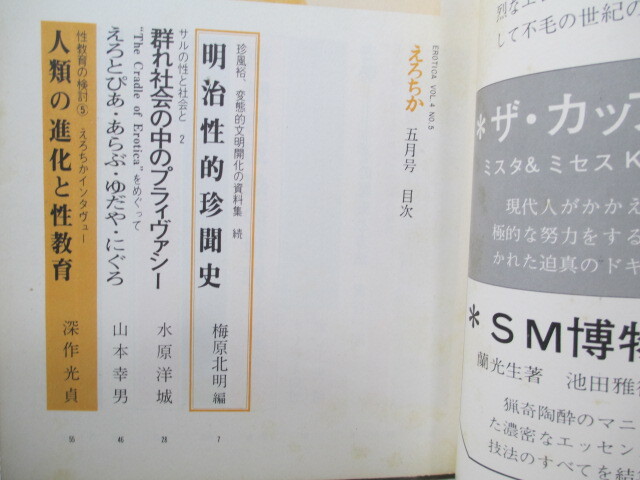 EROTICA VOL.4 NO.5
えろちか 五月号 目次
珍風俗、変態的文明開化の資料集 続
明治性的珍聞史 梅原北明 編 7
サルの性と社会と 2
群れ社会の中のプライヴァシー 水原洋城 28
"The Cradle of Erotica"をめぐって
えろとぴあ・あらぶ・ゆだや・にぐろ 山本幸男 46
性教育の検討⑤ えろちかインタヴュー
人類の進化と性教育 深作光貞 55
して不毛の世紀の
＊ザ・カップ
ミスタ& ミセス K
現代人がかかえ
極的な努力をする
かれた迫真のドキ
＊SM博物
蘭光生著 池田雅
猟奇陶酔のマニ
た濃密なエッセン
技法のすべてを結